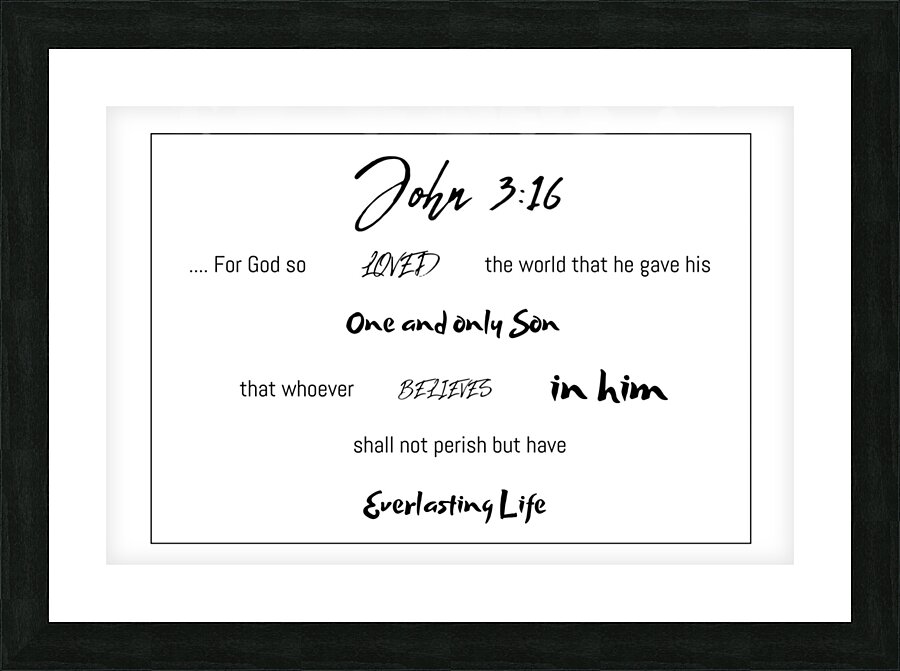 John 3:16
.... For God so LOVED the world that he gave his
One and only Son
that whoever BELIEVES in him
shall not perish but have
Everlasting Life